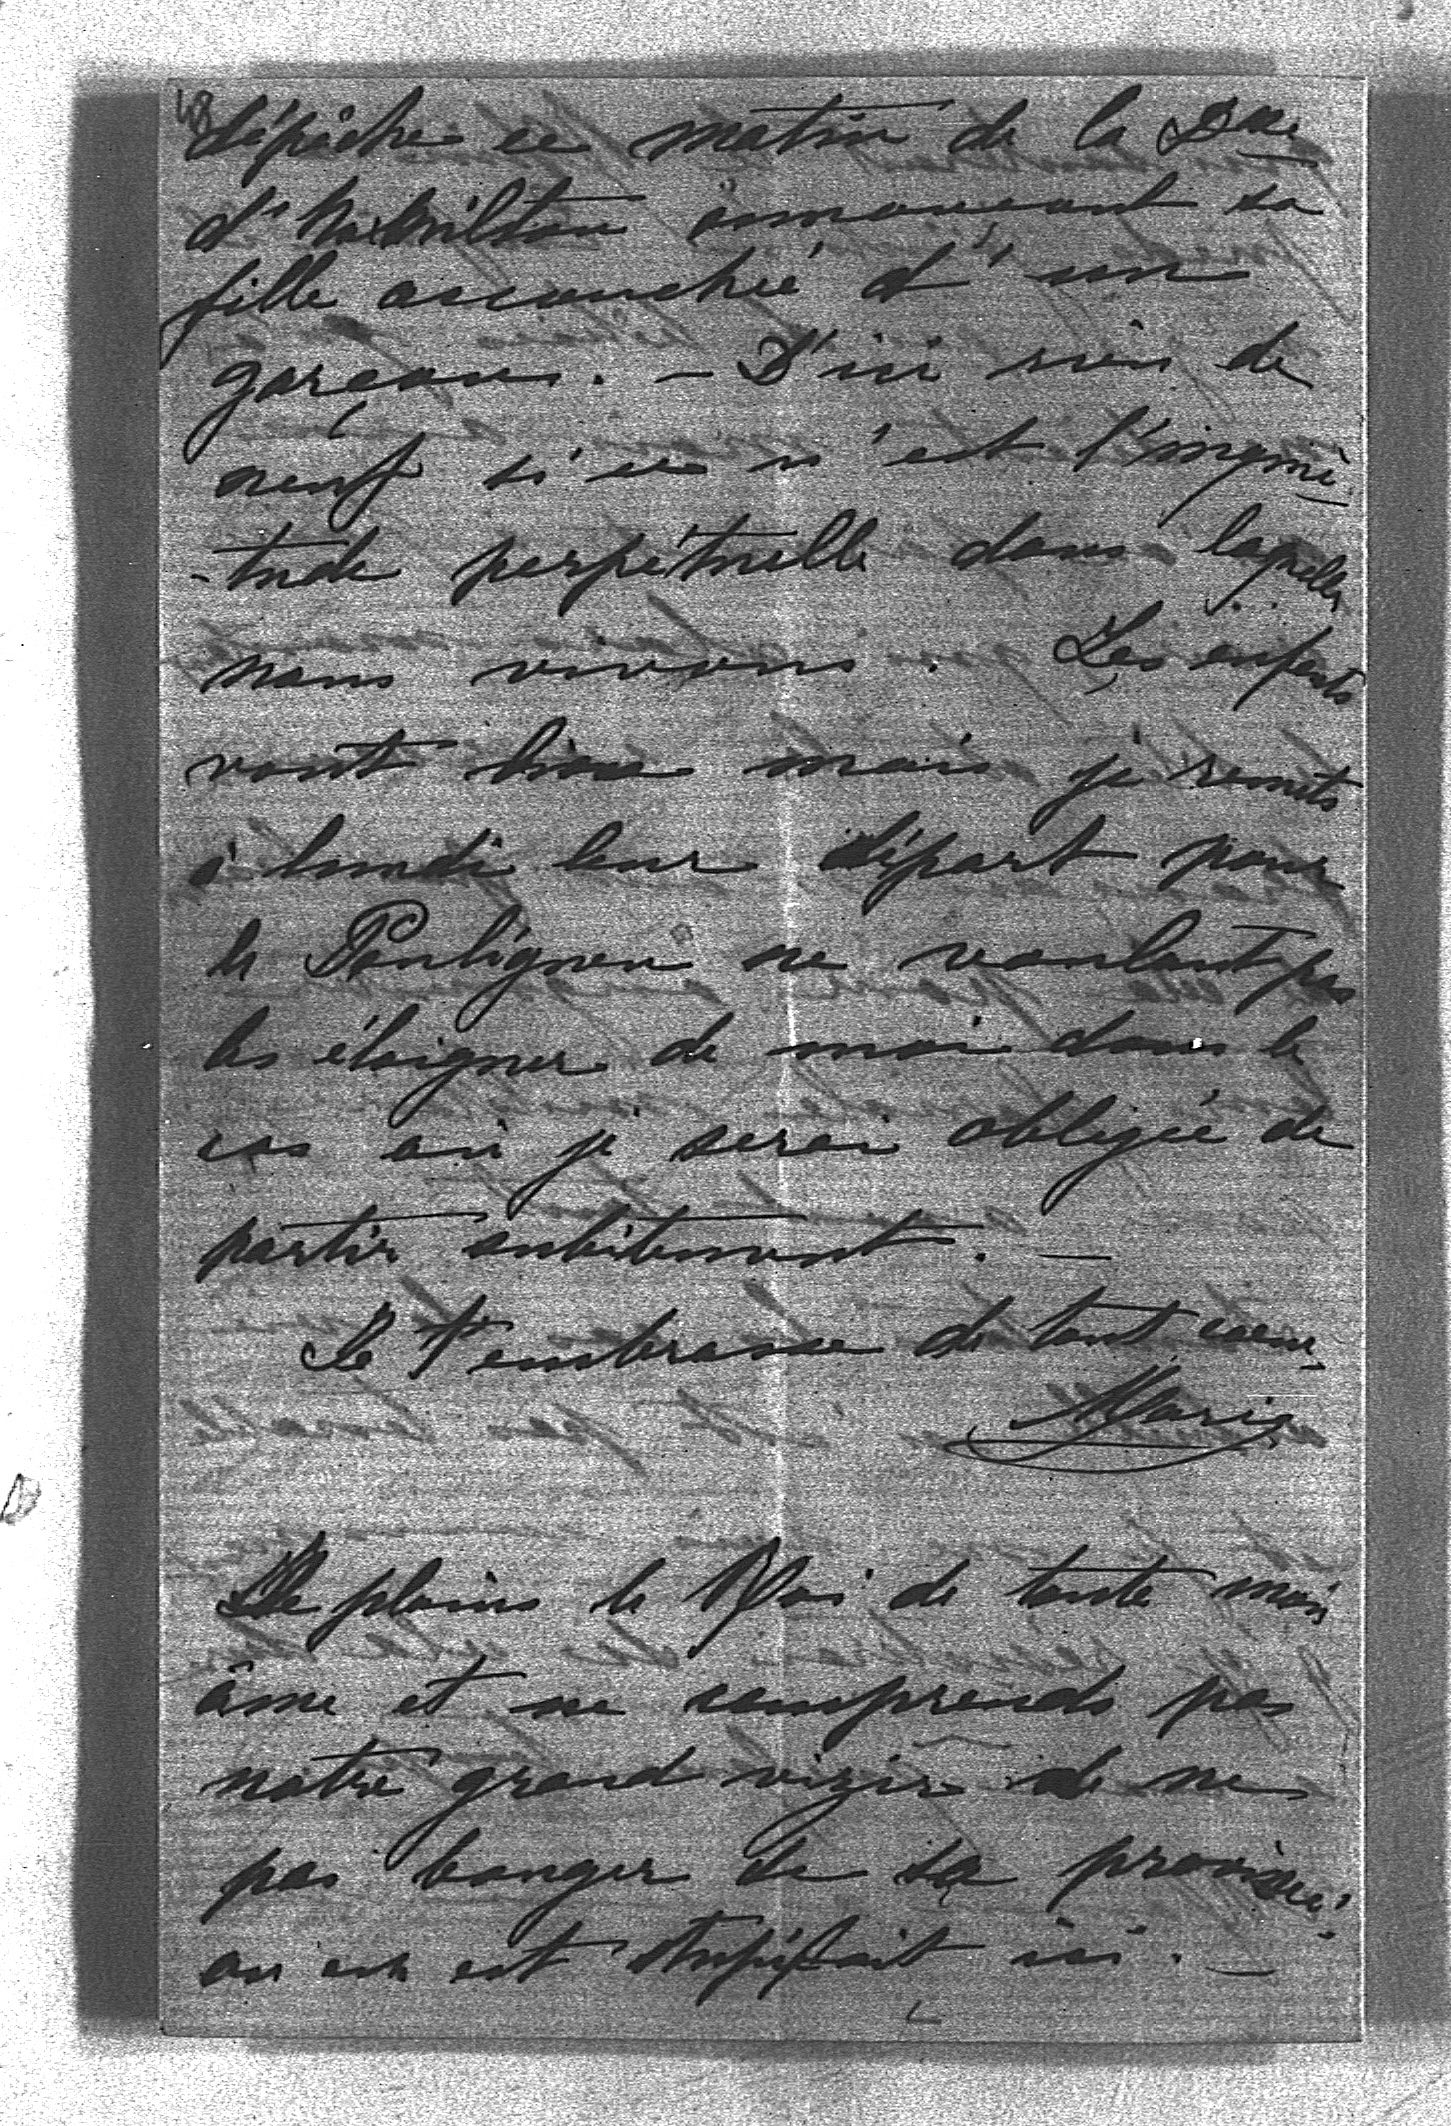 dépêche ce matin de la Dsse
d'Hamilton announçant sa
fille accouchée d'un
garçon. — D'ici rien de
neuf si ce n'est l'inquié
-tude perpétuelle dans laquelle
nous vivons. Les enfants
vont bien mais je remets
à lundi leur départ pour
le Pouliguen ne voulant pas
les éloigner de moi dans le
cas où je serai obligée de
partir subitement. —
Je t'embrasse de tout cœur
Marie
Je plains le Roi de toute mon
âme et ne comprends pas
notre grand vizir de ne
pas bouger de sa province!
on en est stupéfait ici. —